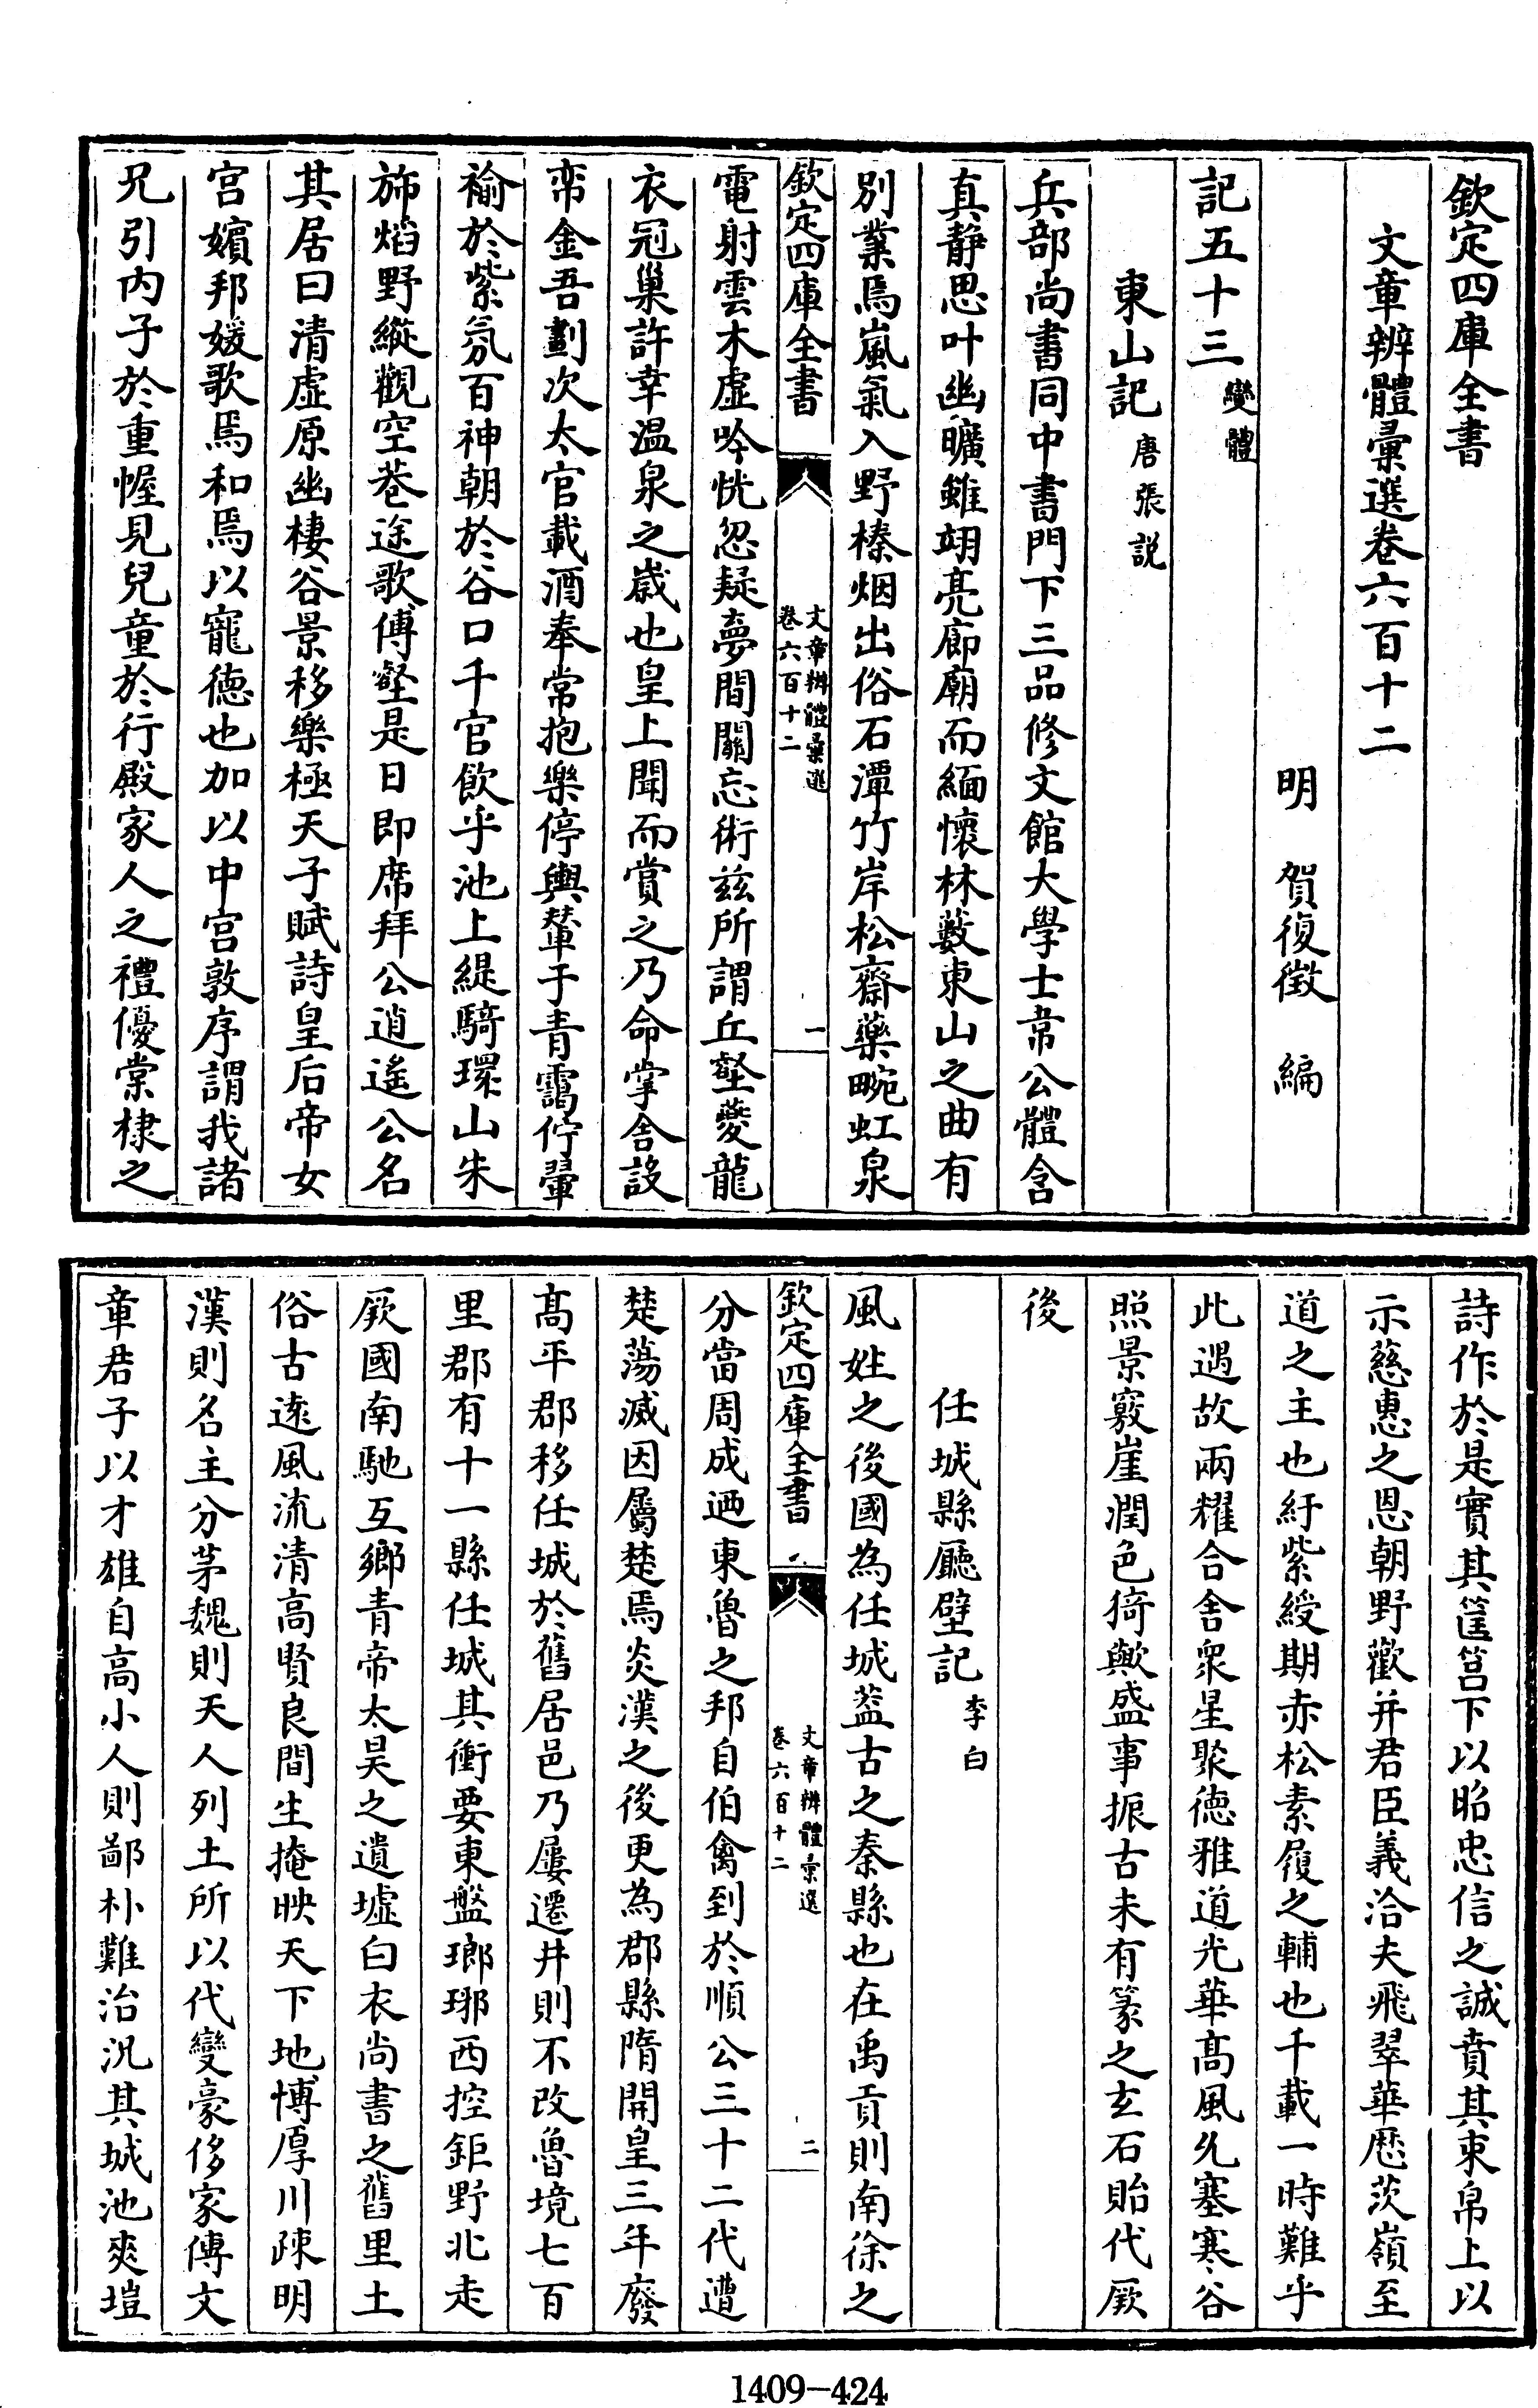 欽定四庫全書
文章辨體彙選卷六百十二
明　賀復徵　編
記五十三變體
東山記唐張説
兵部尚書同中書門下三品修文館大學士韋公體含
真静思叶幽曠雖翊亮廊廟而緬懷林藪東山之曲有
別業焉嵐氣入野榛烟出俗石潭竹岸松齋藥畹虹泉
欽定四庫全書　文章辨體彙選　卷六百十二　一
電射雲木虚吟恍忽疑夢間關忘術兹所謂丘壑夔龍
衣冠巢許幸温泉之歲也皇上聞而賞之乃命掌舍設
帟金吾劃次太官載酒奉常抱樂停輿輦于青靄佇翬
褕於紫氛百神朝於谷口千官飲乎池上緹騎環山朱
斾焰野縱觀空巷途歌傳壑是日即席拜公逍遥公名
其居曰清虚原幽棲谷景移樂極天子賦詩皇后帝女
宫嬪邦媛歌焉和焉以寵徳也加以中宫敦序謂我諸
兄引内子於重幄見兒童於行殿家人之禮優棠棣之
詩作於是實其筐筥下以昭忠信之誠賁其束帛上以
示慈惠之恩朝野歡并君臣義洽夫飛翠華歴茨嶺至
道之主也紆紫綬期赤松素履之輔也千載一時難乎
此遇故兩耀合舍衆星聚徳雅道光華髙風允塞寒谷
照景窮崖潤色猗歟盛事振古未有篆之玄石貽代厥
後
任城縣廳壁記李白
風姓之後國為任城葢古之秦縣也在禹貢則南徐之
欽定四庫全書　文章辨體彙選　卷六百十二　二
分當周成迺東魯之邦自伯禽到於順公三十二代遭
楚蕩滅因屬楚焉炎漢之後更為郡縣隋開皇三年廢
髙平郡移任城於舊居邑乃屢遷井則不改魯境七百
里郡有十一縣任城其衝要東盤瑯琊西控鉅野北走
厥國南馳互鄉青帝太昊之遺墟白衣尚書之舊里土
俗古逺風流清高賢良間生掩映天下地博厚川疎明
漢則名主分茅魏則天人列土所以代變豪侈家傳文
章君子以才雄自高小人則鄙朴難治況其城池爽塏
1409-424